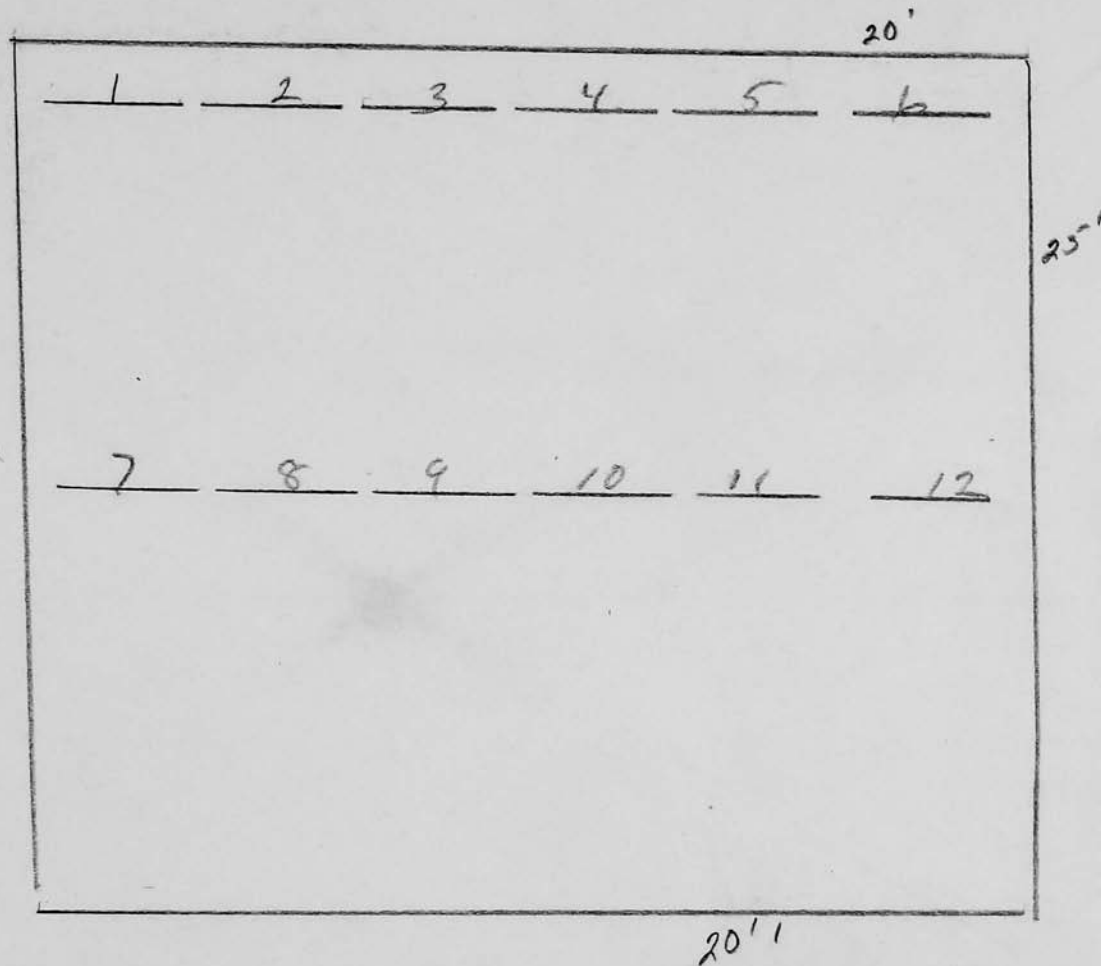 20'
1 2 3 4 5 6
25'
7 8 9 10 11 12
20'1